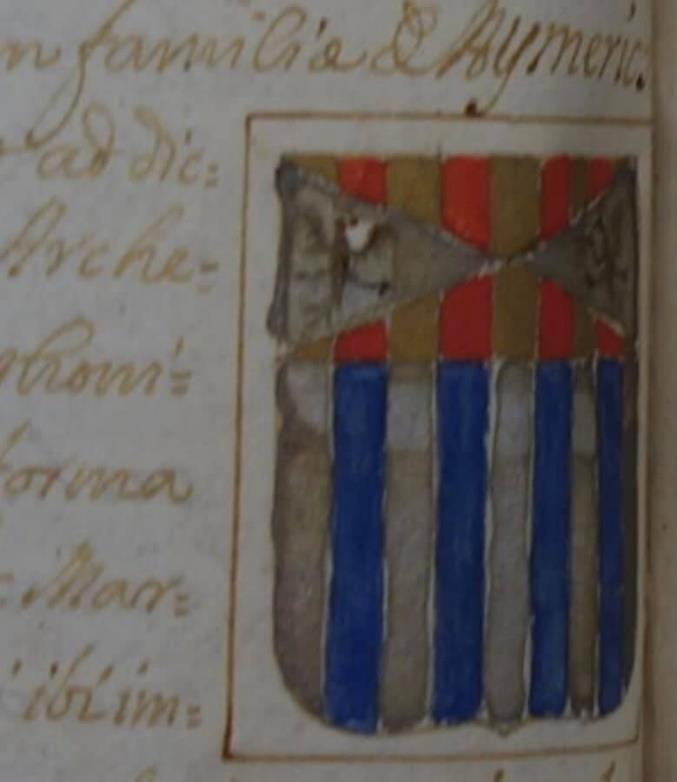 n familia & Aymeric:
ad dic=
Arche=
ghoni=
forma
Mar=
ibi im=